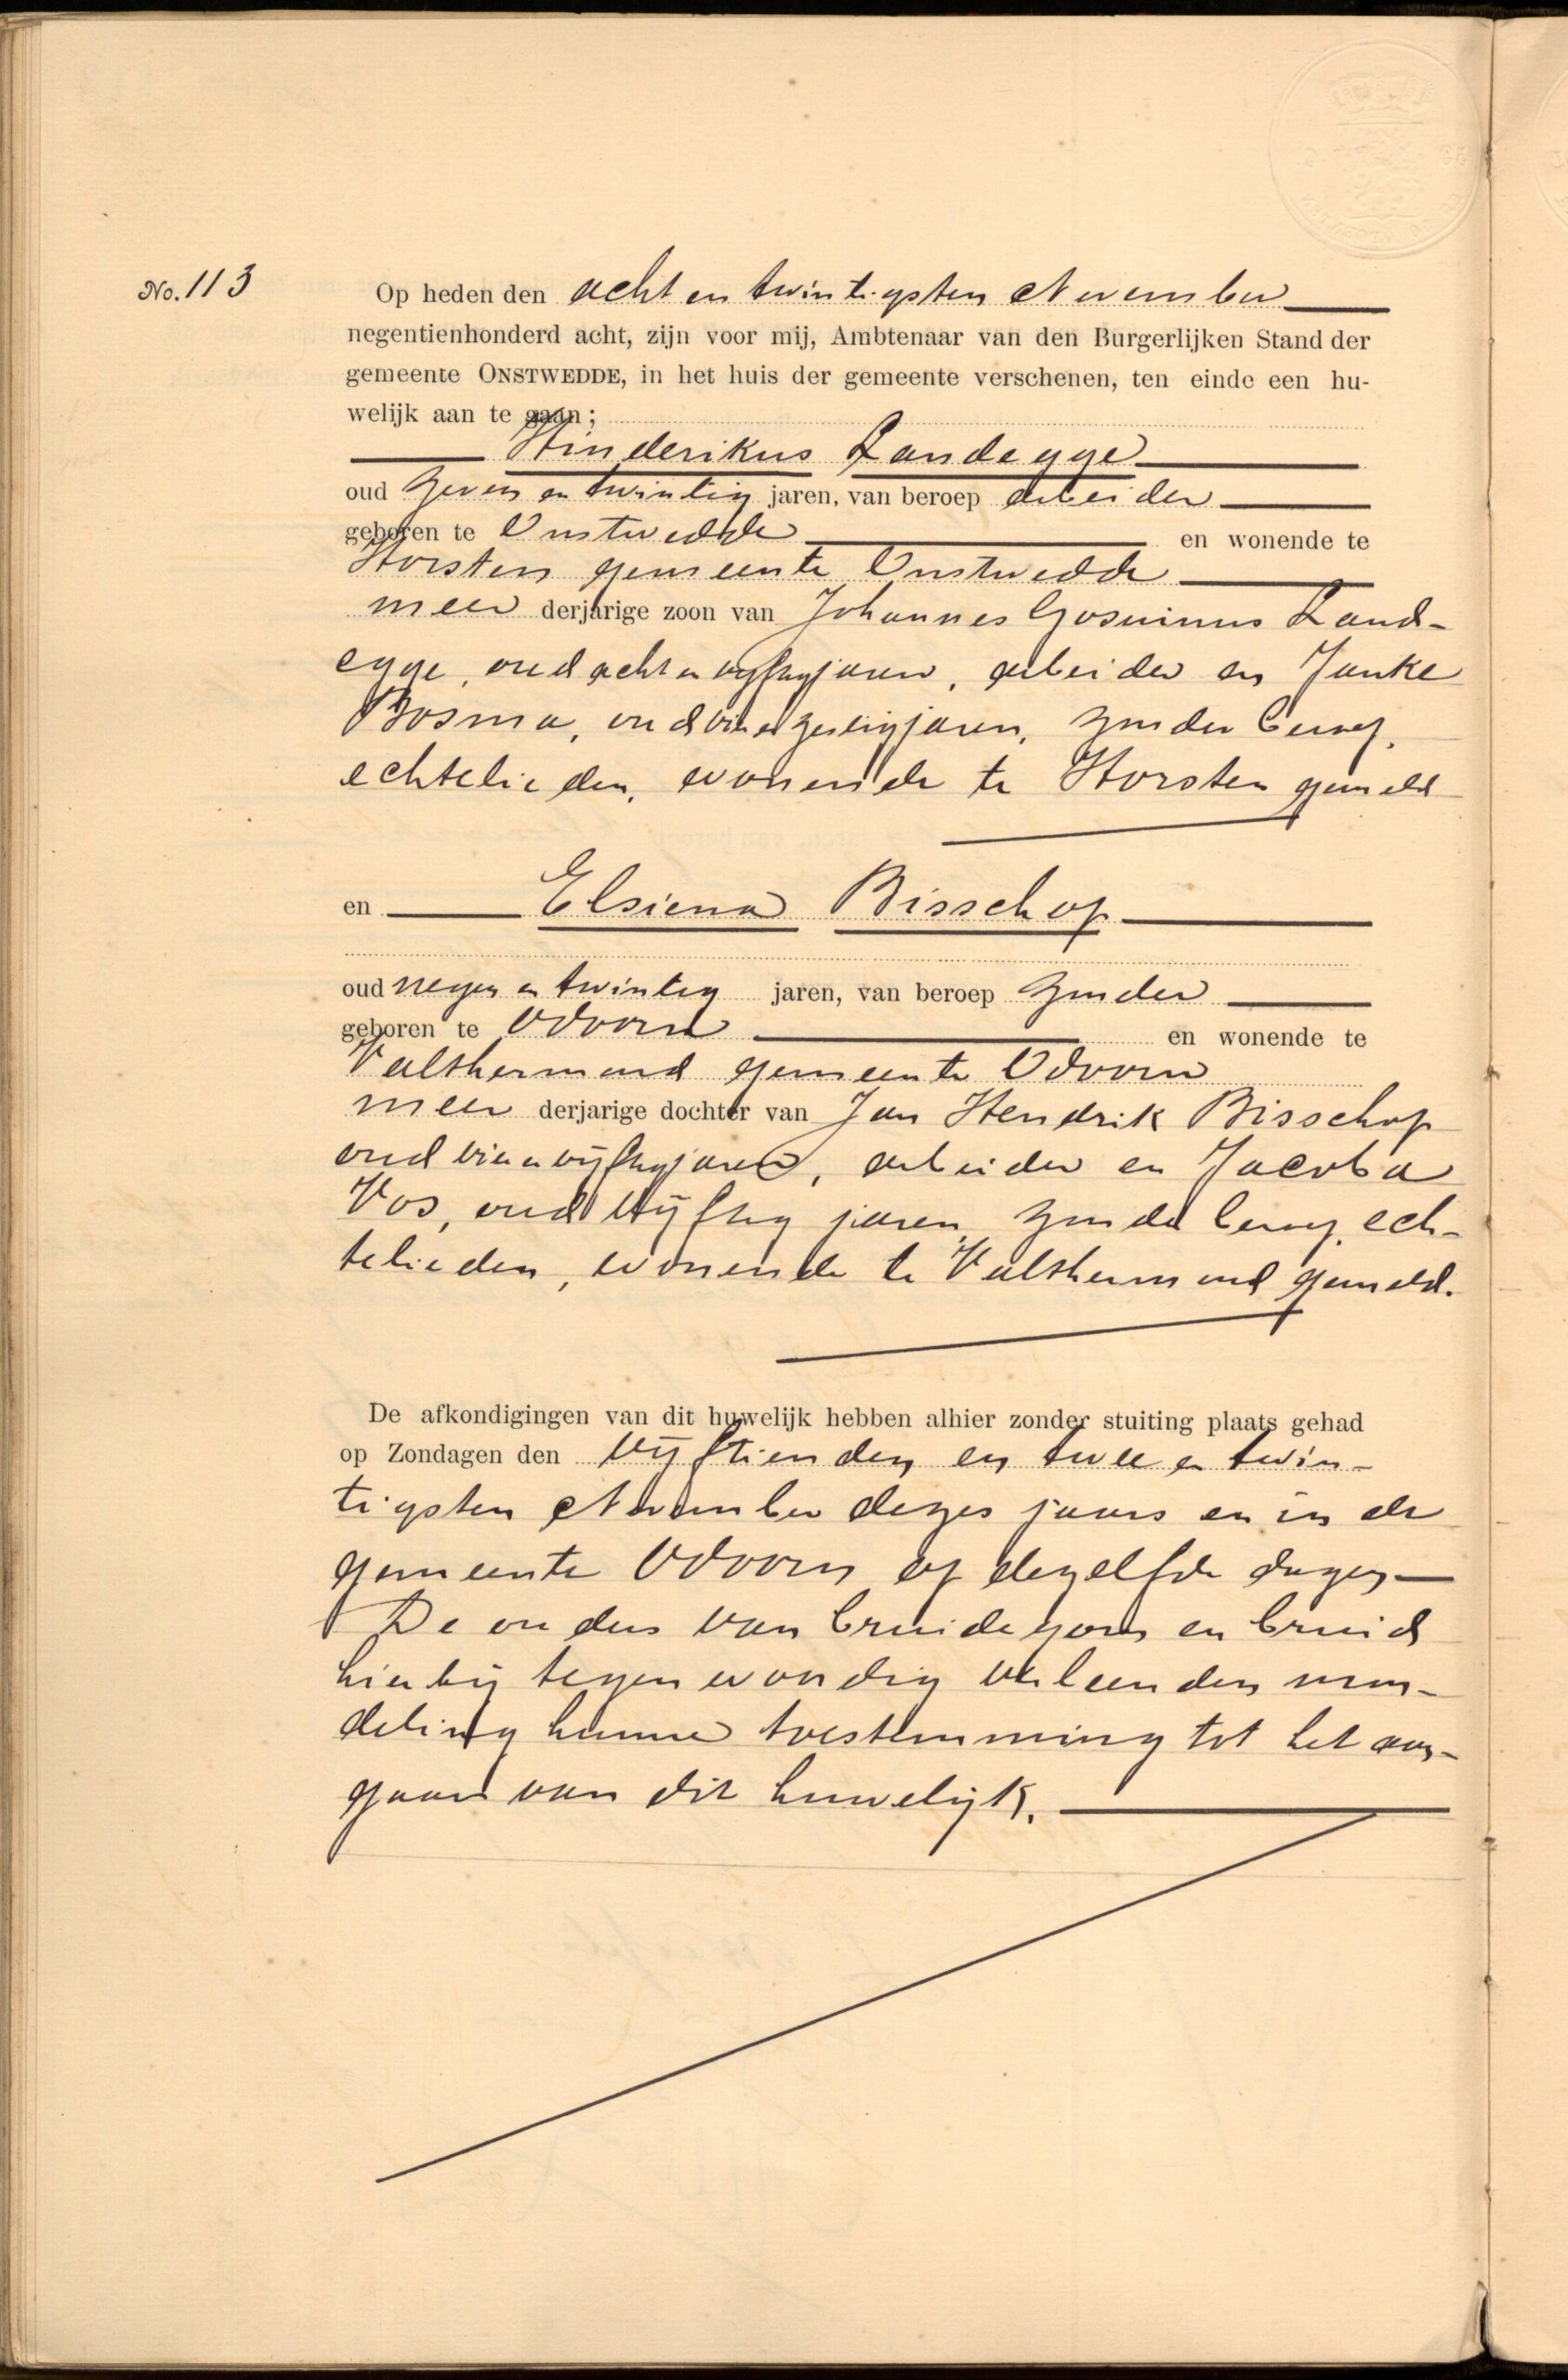 No. 113
Op heden den acht en twintigsten November
negentienhonderd acht, zijn voor mij, Ambtenaar van den Burgerlijken Stand der
gemeente ONSTWEDDE, in het huis der gemeente verschenen, ten einde een hu-
welijk aan te gaan;
Hinderikus Landegge
oud zeven en twintig jaren, van beroep arbeider
geboren te Onstwedde en wonende te
Horsten gemeente Onstwedde
meer derjarige zoon van Johannes Gosuinus Land-
egge, oud acht en vyftig jaren, arbeider en Janke
Bosma, oud vier en zestig jaren, zonder beroep,
echtelieden, wonende te Horsten gemeld
en Elsiena Bisschop
oud negen en twintig jaren, van beroep zonder
geboren te Odoorn en wonende te
Valthermond gemeente Odoorn
meer derjarige dochter van Jan Hendrik Bisschop
oud vier en vyftig jaren, arbeider en Jacoba
Vos, oud vyftig jaren, zonder beroep, ech-
telieden, wonende te Valthermond gemeld.
De afkondigingen van dit huwelijk hebben alhier zonder stuiting plaats gehad
op Zondagen den vyftienden en twee en twin-
tigsten November dezes jaars en in de
gemeente Odoorn op dezelfde dagen
De ouders van bruidegom en bruid
hierbij tegenwoordig verleenden mon-
deling hunne toestemming tot het aan-
gaan van dit huwelijk.